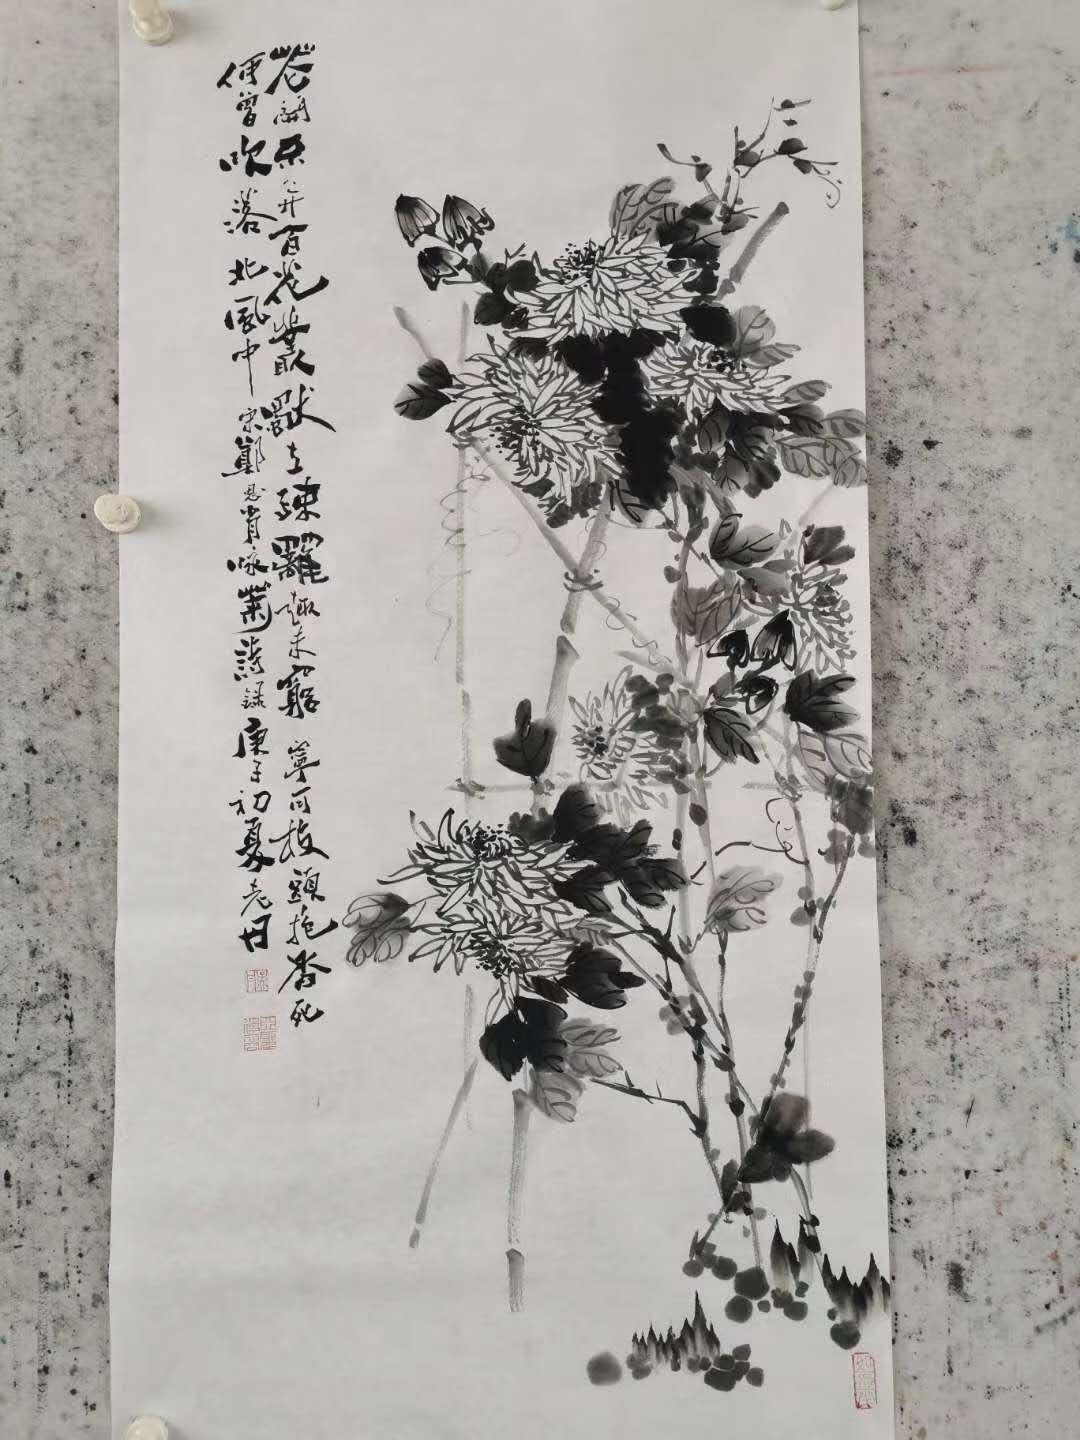 花開不并百花叢獨立疎籬趣未窮寧可枝頭抱香死
何曾吹落北風中宋鄭思肖咏菊詩錄庚子初夏老丹